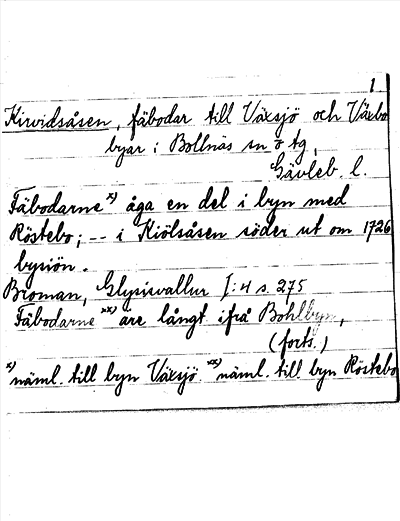 1
Kirvidsåsen, fäbodar till Växsjö och Växbo
byar i Bollnäs sn o tg,
Gävleb. l.
Fäbodarne x) äga en del i byn med
Röstebo; -- i Kiölsåsen söder ut om 1726
bysiön.
Broman, Glysisvallur I:4 s. 275
Fäbodarne xx) äre långt ifrå Bohlbyn,
(forts.)
x) näml. till byn Växsjö. xx) näml. till byn Röstebo